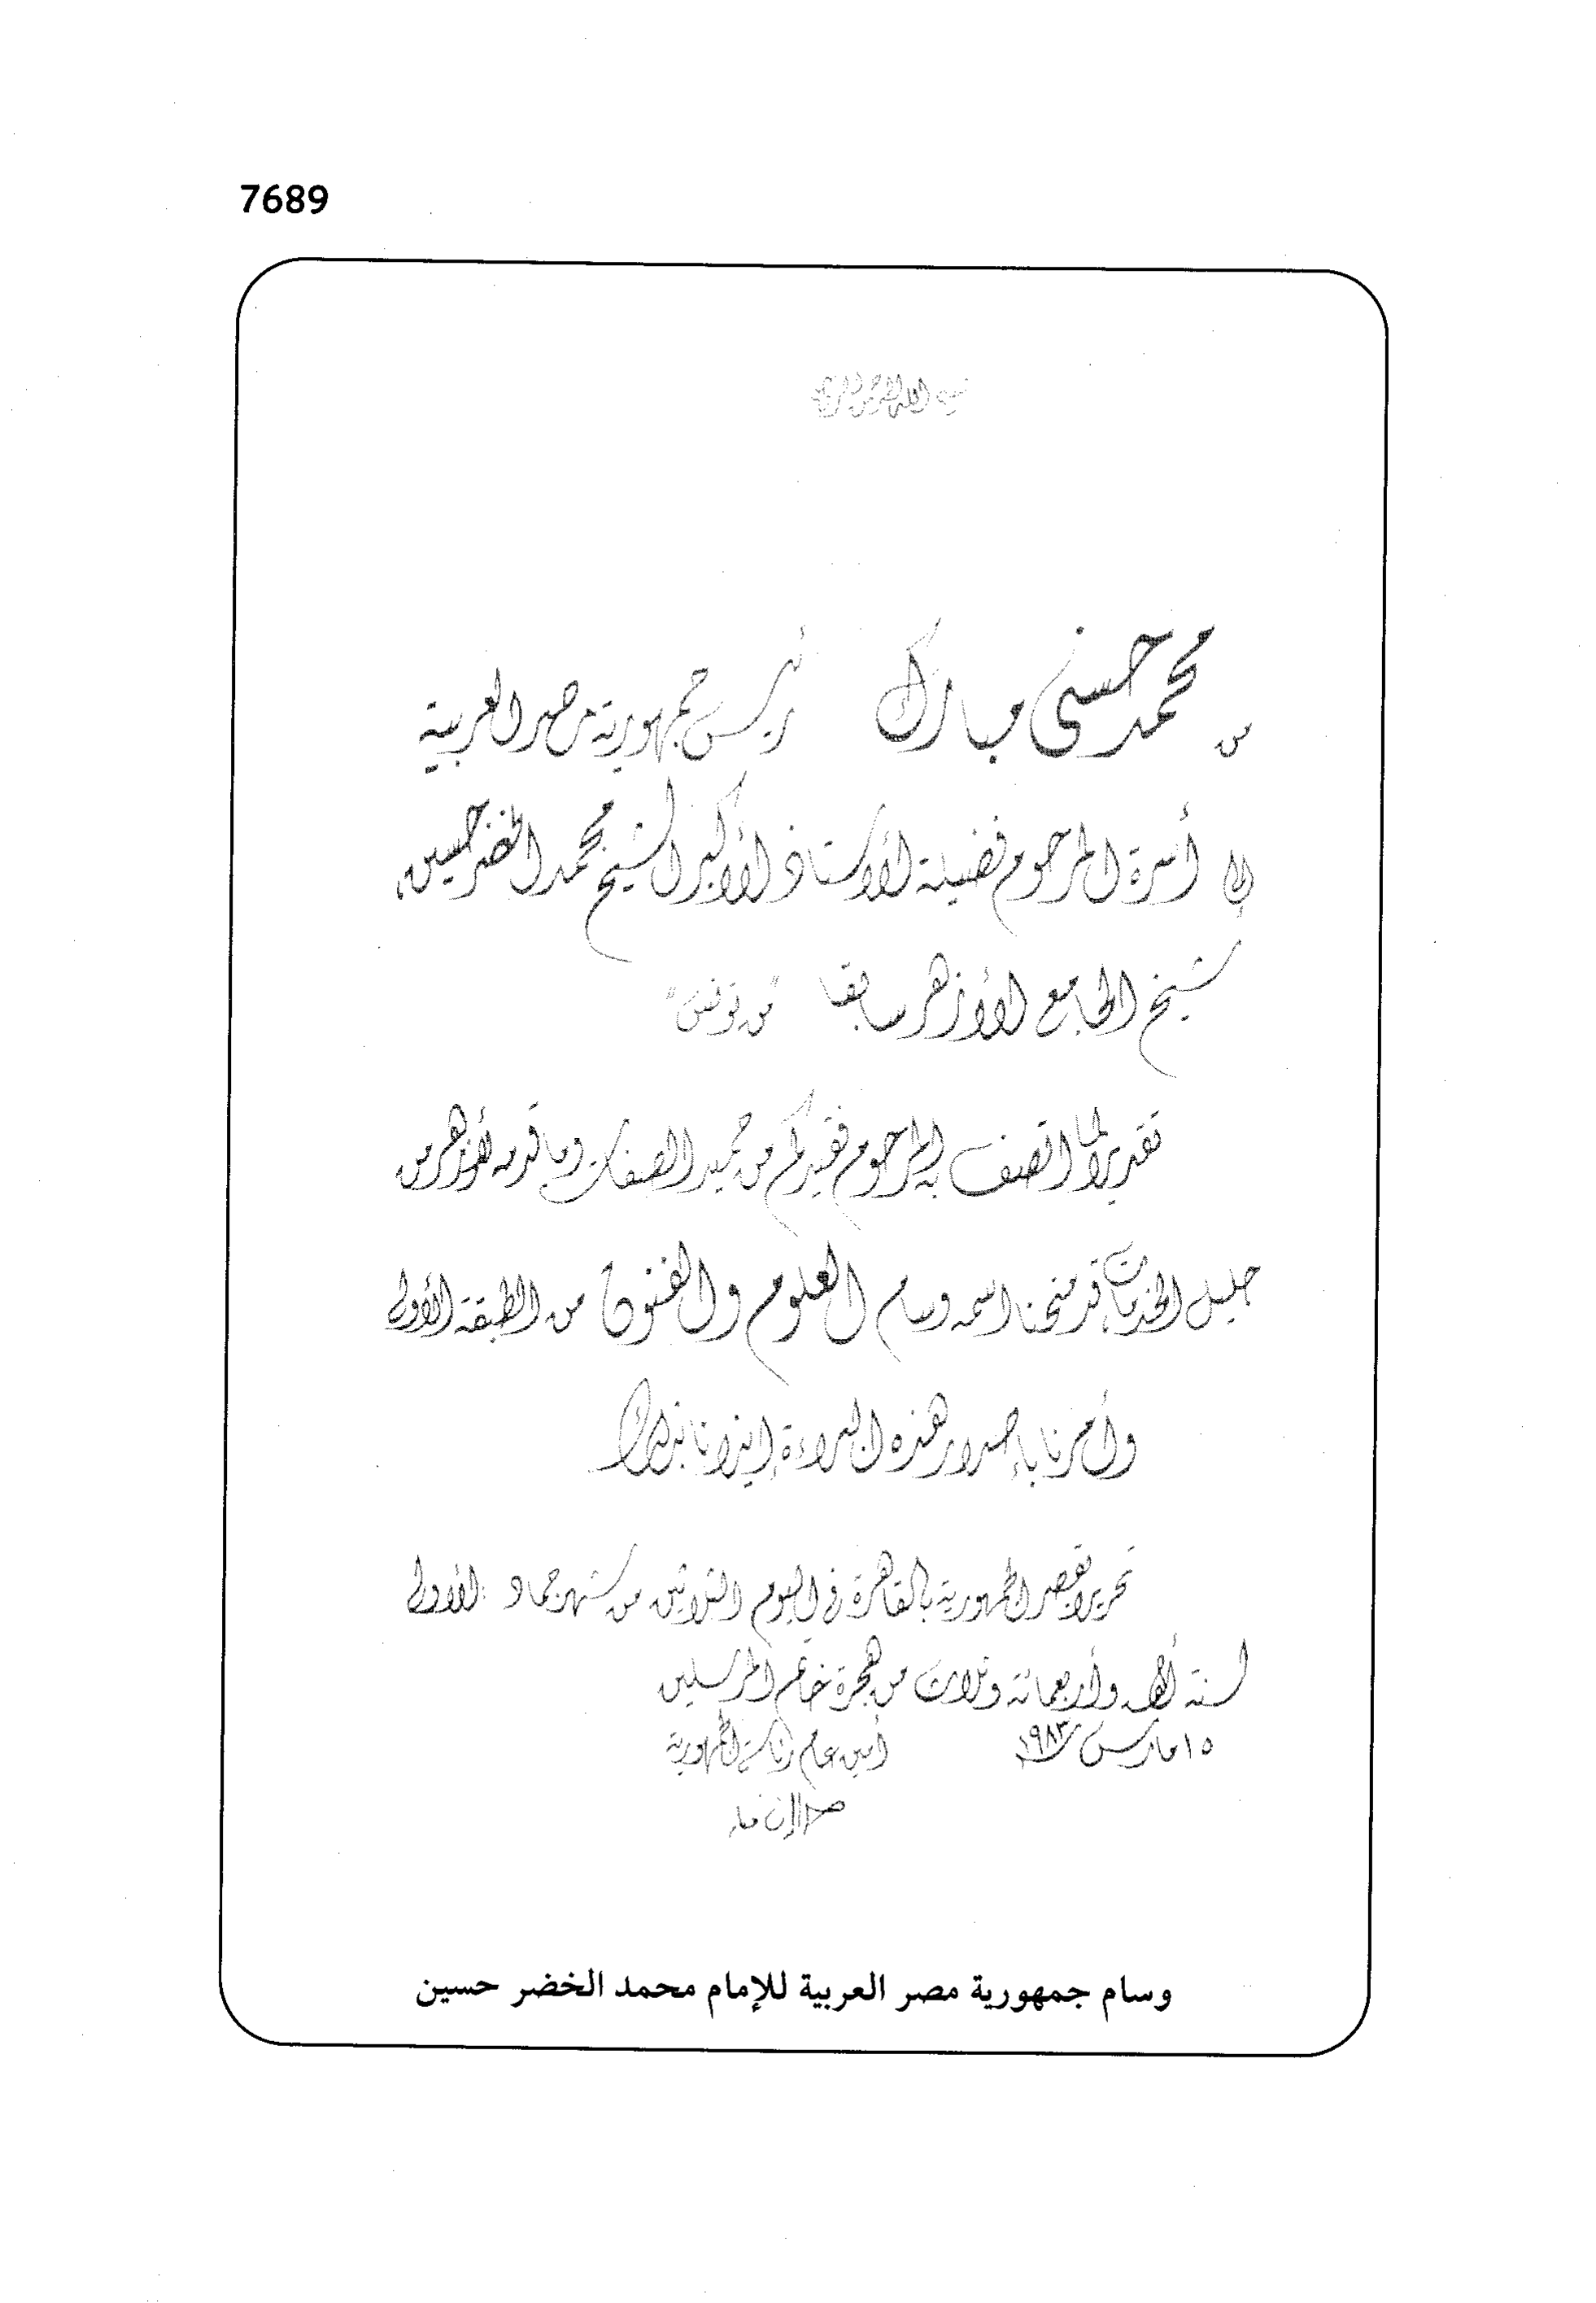 7689
بسم الله الرحمن الرحيم
من محمد حسنى مبارك رئيس جمهورية مصر العربية
إلى أسرة المرحوم فضيلة الأستاذ الأكبر الشيخ محمد الخضر حسين،
شيخ الجامع الأزهر سابقا "من تونس"
تقديرا لما اتصف به المرحوم فقيدكم من حميد الصفات وما قدمه للأزهر من
جليل الخدمات، قد منحنا اسمه وسام العلوم والفنون من الطبقة الأولى
وأمرنا بإصدار هذه البراءة إيذانا بذلك
تحريرا بقصر الجمهورية بالقاهرة فى اليوم الثلاثين من شهر جماد الأولى
لسنة ألف وأربعمائة وثلاث من هجرة خاتم المرسلين
١٥ مارس سنة ١٩٨٣ أمين عام رئاسة الجمهورية
وسام جمهورية مصر العربية للإمام محمد الخضر حسين